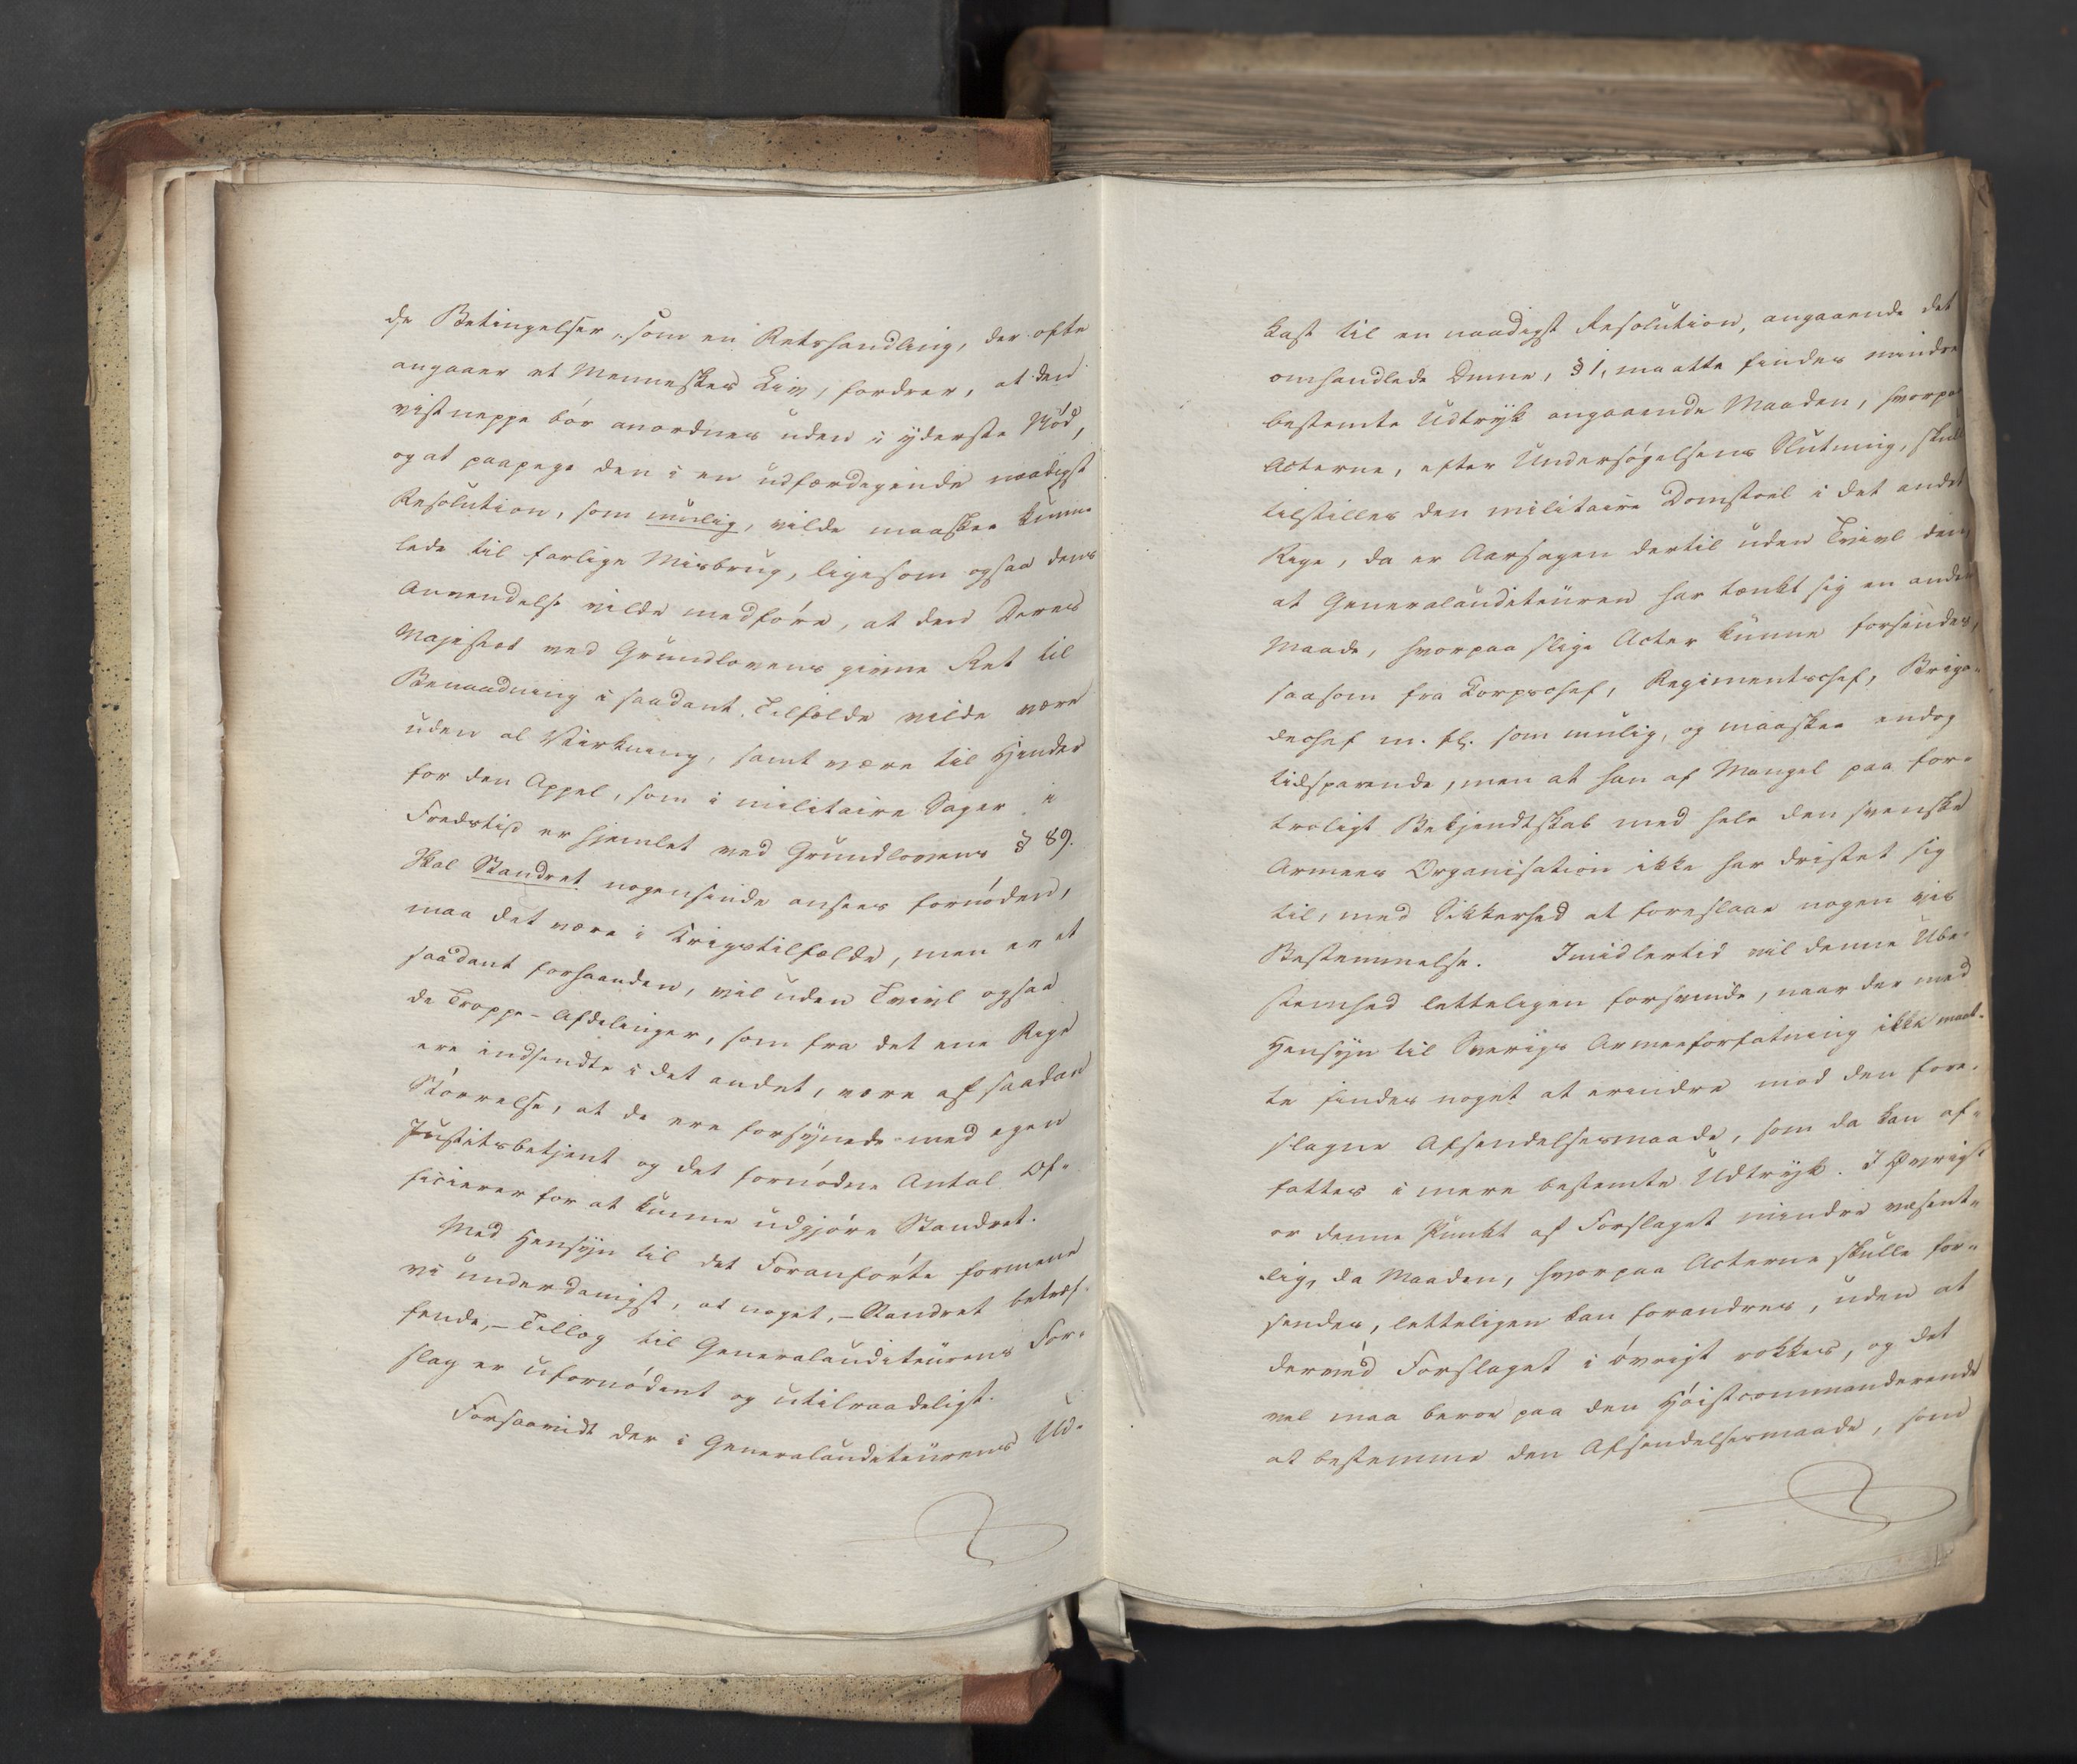 de Betingelser, som en Retshandling, der ofte
angaaer et Menneskes Liv, fordrer, at den
vist neppe bør anordnes uden i yderste Nød,
og at paapege den i en udfærdigende naadigst
Resolution, som mulig, vilde maaskee kunne
lede til farlige Misbrug, ligesom ogsaa dens
Anvendelse vilde medføre, at den Deres
Majestæt ved Grundlovens givne Ret til
Benaadning i saadant Tilfælde vilde være
uden al Virkning, samt være til Hinder
for den Appel, som i militaire Sager i
Fredstid er hjemlet ved Grundlovens § 89.
Skal Standret nogensinde ansees fornøden,
maa det være i Krigstilfælde, men er et
saadant forhaanden, vil uden Tvivl ogsaa
de Troppe-Afdelinger, som fra det ene Rige
ere indsendte i det andet, være af saadan
Størrelse, at de ere forsynede med egen
Justitsbetjent og det fornødne Antal Of-
ficierer for at kunne udgjøre Standret.
Med Hensyn til det Foranførte formene
vi underdanigst, at noget, - Standret betræf-
fende, - Tillæg til Generalauditeurens For-
slag er ufornødent og utilraadeligt.
Forsaavidt der i Generalauditeurens Ud-
kast til en naadigst Resolution, angaaende det
omhandlede Emne, § 1, maatte findes mindre
bestemte Udtryk angaaende Maaden, hvorpaa
Acterne, efter Undersøgelsens Slutning, skulle
tilstilles den militaire Domstoel i det andet
Rige, da er Aarsagen dertil uden Tvivl den,
at Generalauditeuren har tænkt sig en anden
Maade, hvorpaa slige Acter kunne forsendes,
saasom fra Corpschef, Regimentschef, Briga-
dechef m. fl. som mulig, og maaskee endog
tidsparende, men at han af Mangel paa for-
troligt Bekjendtskab med hele den svenske
Armees Organisation ikke har dristet sig
til, med Sikkerhed at foreslaae nogen vis
Bestemmelse. Imidlertid vil denne Ube-
stemhed letteligen forsvinde, naar der med
Hensyn til Sverigs Armeeforfatning ikke maat-
te findes noget at erindre mod den fore-
slagne Afsendelsesmaade, som da kan af-
fattes i mere bestemte Udtryk. I Øvrigt
er denne Punkt af Forslaget mindre væsent-
lig, da Maaden, hvorpaa Acterne skulle for-
sendes, letteligen kan forandres, uden at
derved Forslaget i øvrigt rokkes, og det
vel maa beroe paa den Høistcommanderende
at bestemme den Afsendelsesmaade, som